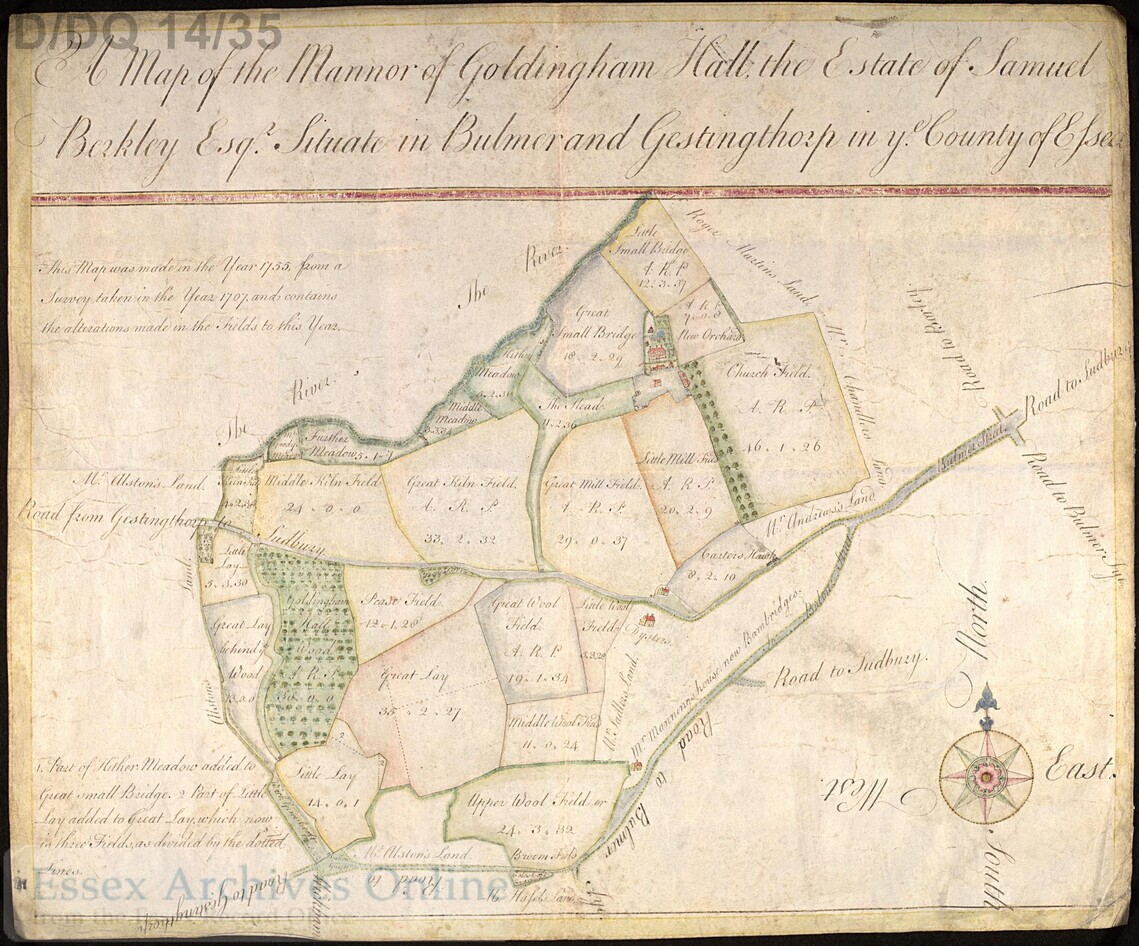 D/DQ 14/35
A Map of the Mannor of Goldingham Hall, the Estate of Samuel
Berkley Esqr. Situate in Bulmer and Gestingthorp in ye County of Essex
This Map was made in the Year 1755, from a
Survey taken in the Year 1707, and contains
the alterations made in the Fields to this Year.
The River.
The River.
Little
Small Bridge
A. R. P
12. 3. 37
Roger Martins Land,
Great
Small Bridge
18. 2. 29
A R P
New Orchard
Hither
Meadow
Middle
Meadow
Further
Meadow 5. 1. 1
The Mead
4. 2. 36
Church Field.
A. R. P.
46. 1. 26
Mr. Chandlers Land
Road to Sudbury
Road to Bulmer Tye
Bulmer Street
Mr. Alston's Land.
Road from Gestingthorp to
Sudbury
Middle Kiln Field
24. 0. 0
Great Kiln Field.
A. R. P
33. 2. 32
Great Mill Field.
A. R. P
29. 0. 37
Little Mill Field
A. R. P
20. 2. 9
Mr. Andrews's Land
8. 2. 10
Little
Lay
5. 3. 30
Great Lay
behind ye
Wood
Goldingham
Hall
Wood
A R P
Pease Field.
12. 1. 26
Great Wool
Field.
A. R. P
19. 1. 34
Little Wool
Field
Great Lay
35. 2. 27
Middle Wool Field
11. 0. 24
Little Lay
14. 0. 1
Upper Wool Field or
24. 3. 32
Broom Field
Mr. Manning's house, now Bambridges.
Road to Sudbury.
Road to Bulmer Tye
Mr. Alston's Land.
Road to
Road to Gestingthorp
North.
East.
South
West
1. Part of Hither Meadow added to
Great small Bridge. 2 Part of Little
Lay added to Great Lay, which now
is three Fields, as divided by the dotted
Lines.
Essex Archives Online